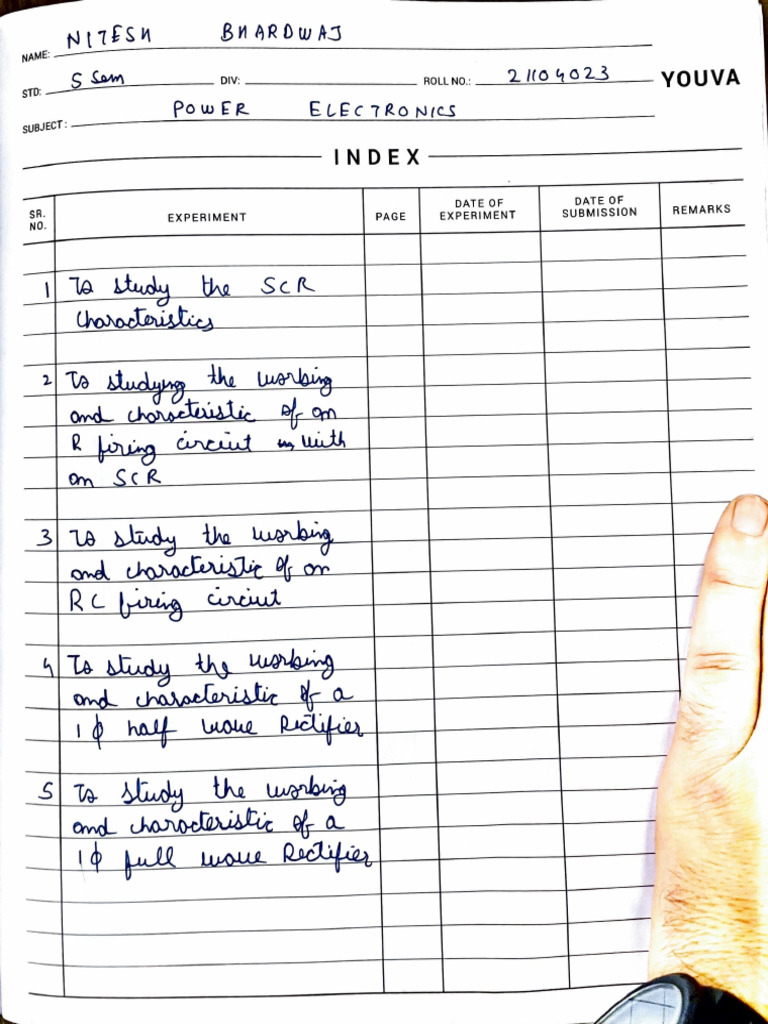 NAME: NITESH BHARDWAJ
STD: 5 Sem DIV: ROLL NO.: 21104023 YOUVA
SUBJECT: POWER ELECTRONICS
INDEX
SR. NO. EXPERIMENT PAGE DATE OF EXPERIMENT DATE OF SUBMISSION REMARKS
1 To study the SCR
Characteristics
2 To studying the working
and characteristic of an
R firing circiut with
an SCR
3 To study the working
and characteristic of an
RC firing circiut
4 To study the working
and characteristic of a
1 ϕ half wave Rectifier
5 To study the working
and characteristic of a
1 ϕ full wave Rectifier